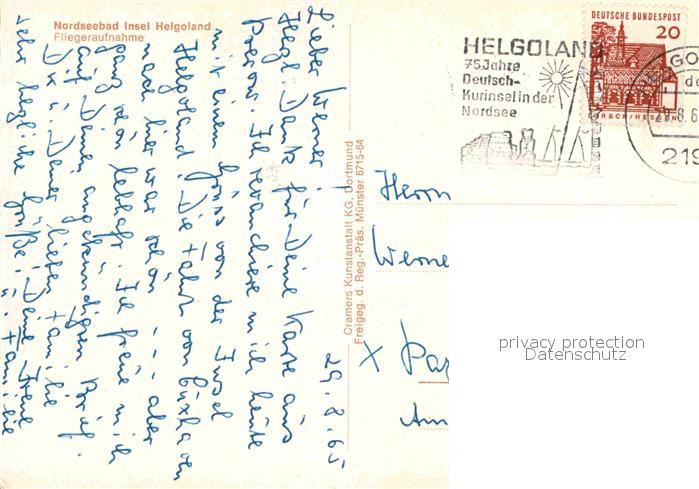 Nordseebad Insel Helgoland
Fliegeraufnahme
29.8.65
Lieber Werner!
Herzl. Dank für Deine Karte aus
Prerow. Ich revanchiere mich heute
mit einem Gruss von der Insel
Helgoland. Die Fahrt von
nach hier war schön - - - aber
ganz schön lebhaft. Ich freue mich
auf Deinen angekündigten Brief.
Dir u. Deiner lieben Familie
sehr herzliche Grüße! Deine Irene
u. Familie
Cramers Kunstanstalt KG, Dortmund
Freigeg. d. Reg.-Präs. Münster 6715-64
HELGOLAND
75 Jahre
Deutsch-
Kurinsel in der
Nordsee
DEUTSCHE BUNDESPOST
20
LORSCH/HESSEN
219
Herrn
Werne
X Par
Am
privacy protection
Datenschutz